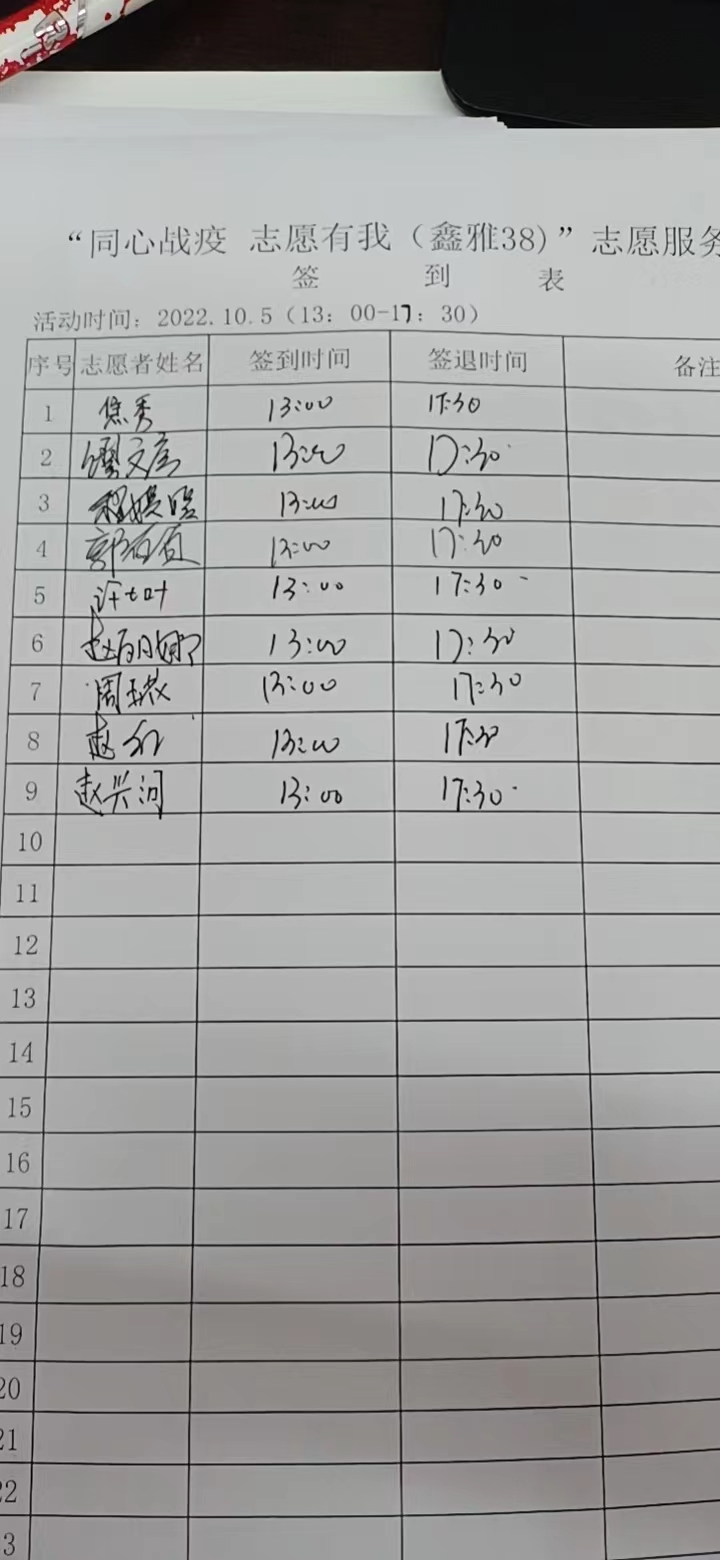 “同心战疫 志愿有我（鑫雅38）”志愿服务
签 到 表
活动时间：2022.10.5（13：00-17：30）
序号 志愿者姓名 签到时间 签退时间 备注
1 焦秀 13:00 17:30
2 13:00 17:30
3 13:00 17:30
4 郭 13:00 17:30
5 许 13:00 17:30
6 赵 13:00 17:30
7 周 13:00 17:30
8 赵 13:00 17:30
9 赵兴河 13:00 17:30
10
11
12
13
14
15
16
17
18
19
20
21
22
3